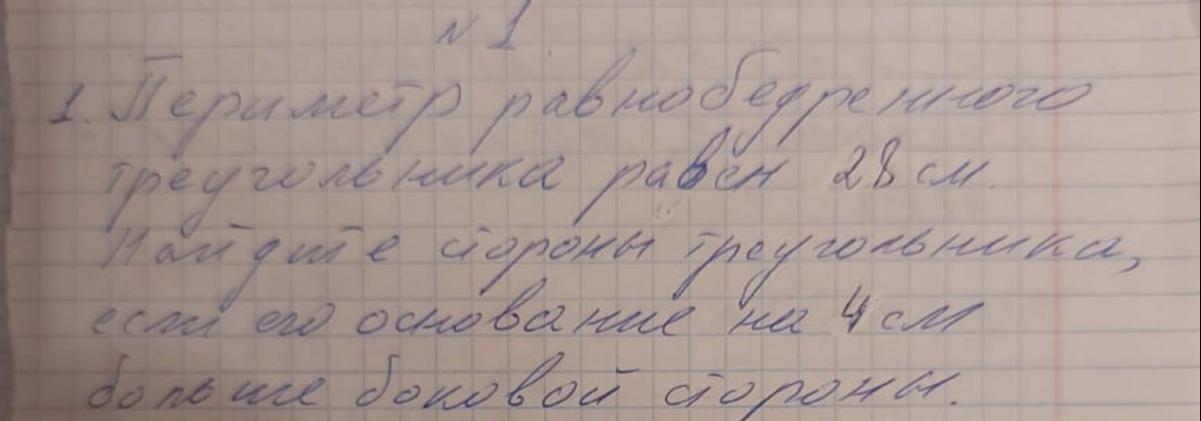 №1
1. Периметр равнобедренного
треугольника равен 28 см.
Найдите стороны треугольника,
если его основание на 4 см
больше боковой стороны.